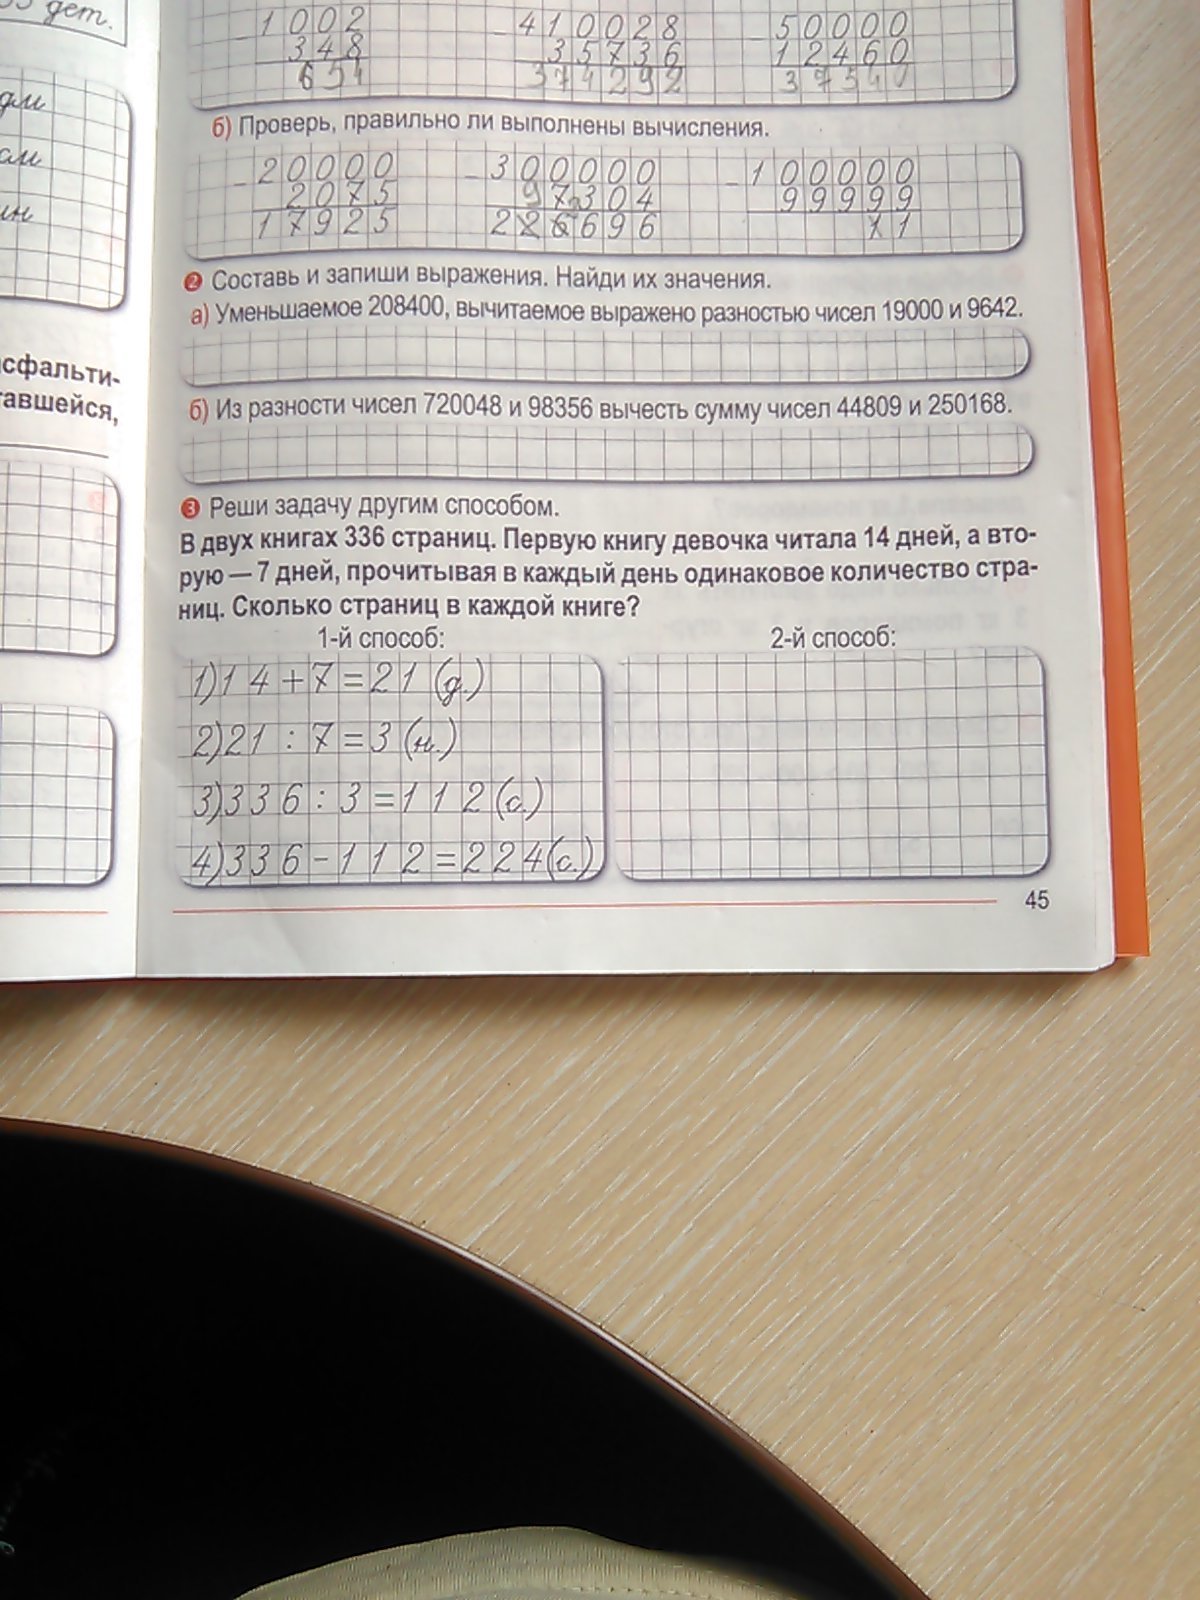 дет.
1002
348
654
410028
35736
374292
50000
12460
37540
б) Проверь, правильно ли выполнены вычисления.
20000
2075
17925
300000
97304
226696
100000
99999
11
❷ Составь и запиши выражения. Найди их значения.
а) Уменьшаемое 208400, вычитаемое выражено разностью чисел 19000 и 9642.
б) Из разности чисел 720048 и 98356 вычесть сумму чисел 44809 и 250168.
❸ Реши задачу другим способом.
В двух книгах 336 страниц. Первую книгу девочка читала 14 дней, а вто-
рую — 7 дней, прочитывая в каждый день одинаковое количество стра-
ниц. Сколько страниц в каждой книге?
1-й способ:
2-й способ:
1) 14 + 7 = 21 (д.)
2) 21 : 7 = 3 (н.)
3) 336 : 3 = 112 (с.)
4) 336 - 112 = 224 (с.)
45
сфальти-
тавшейся,